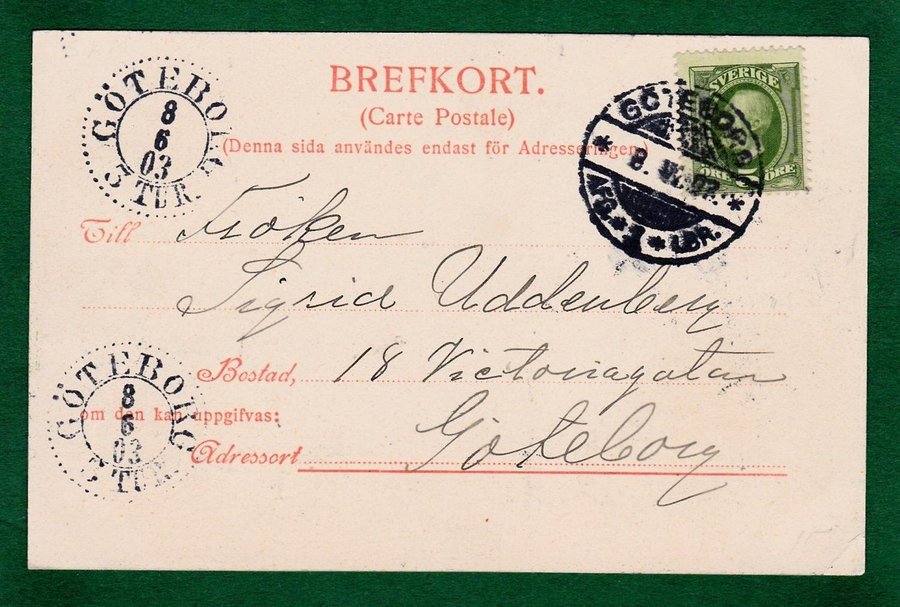 BREFKORT.
(Carte Postale)
(Denna sida användes endast för Adresseringen.)
SVERIGE
ÖRE ÖRE
GÖTEBORG
8
6
03
5 TUR.
GÖTEBORG
* 8. VI. 03 *
AFG. * 2 * LBR.
Till Fröken
Sigrid Uddenberg
Bostad, 18 Victoriagatan
om den kan uppgifvas:
Adressort Göteborg
GÖTEBORG
8
6
03
TUR.